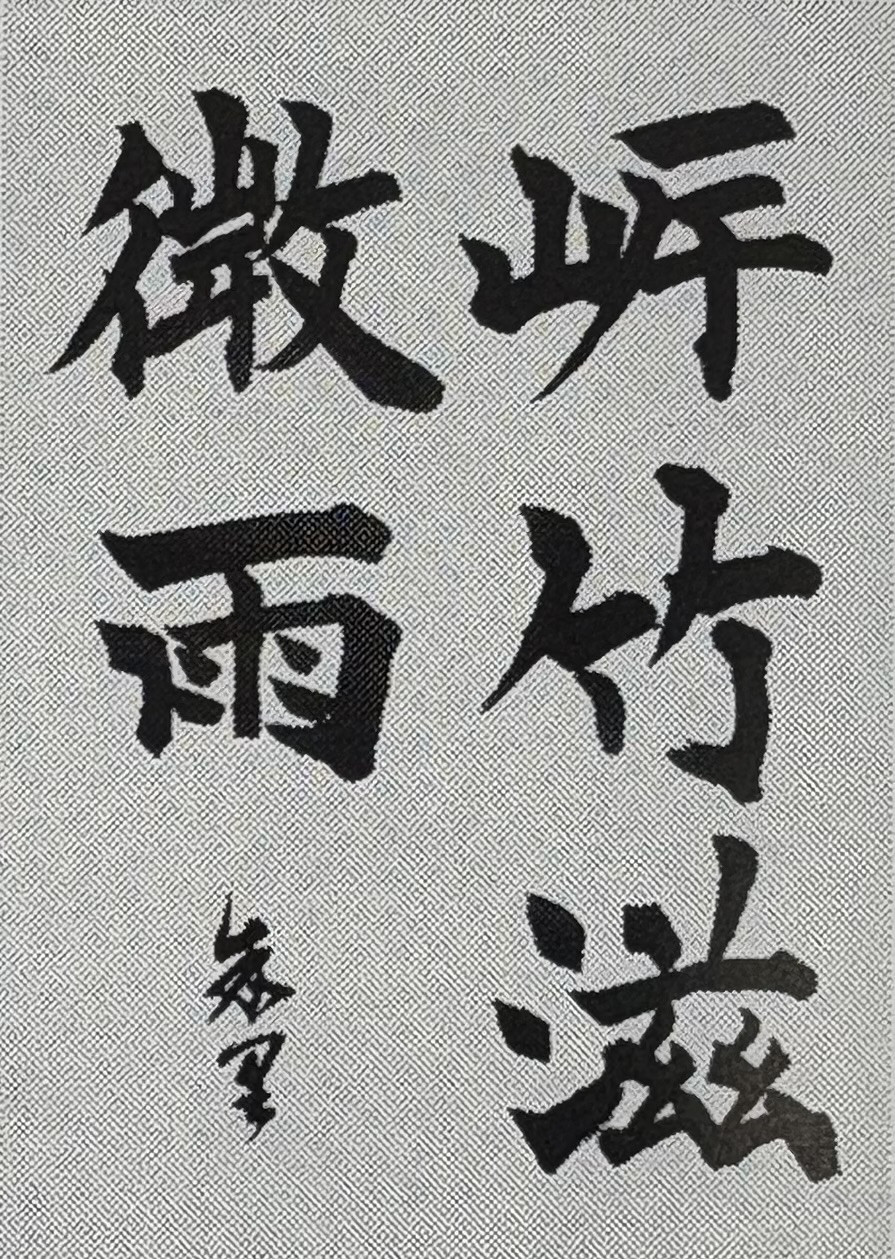 岸竹滋
微雨